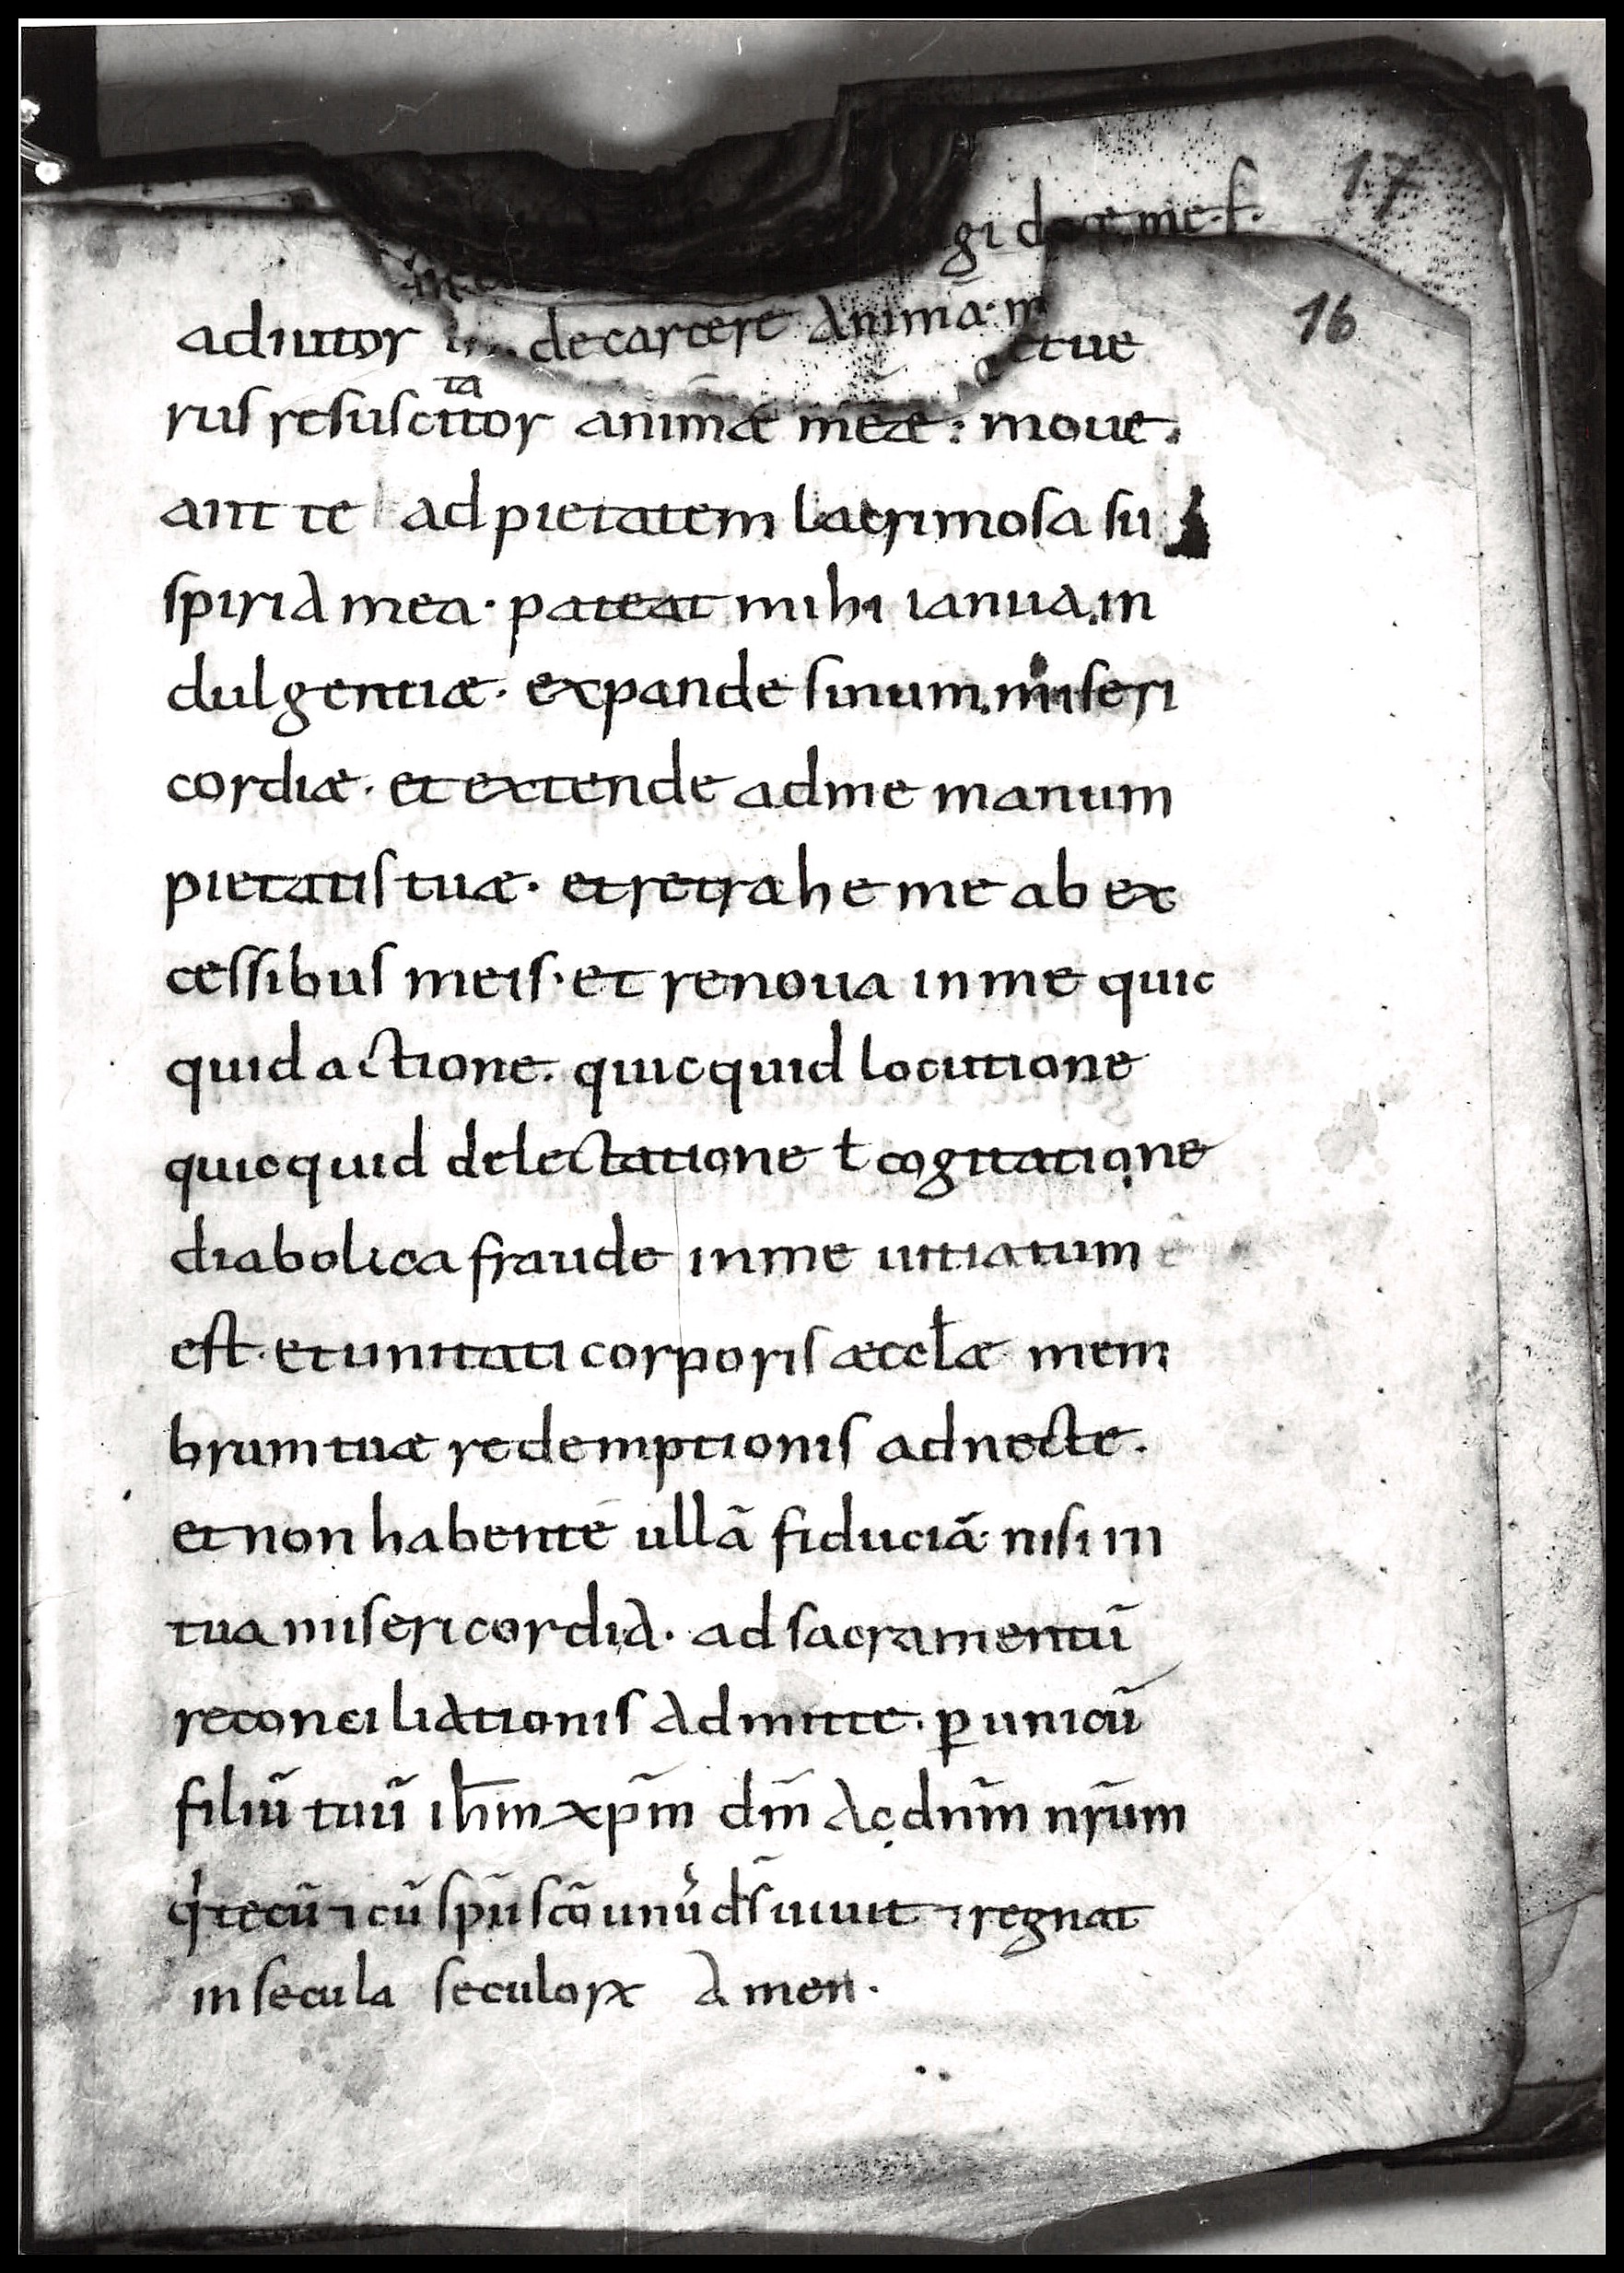 17
gi
me·f·
16
de carcere anima͂·m
adiutor
etue
ta
rus resuscitor animæ meæ: moue·
ant te ad pietatem lacrimosa su
spiria mea· pateat mihi ianua.in
dulgentiæ· expande sinum.miseri
cordiæ· et extende adme manum
pietatis tuæ· et retrahe me ab ex
cessibus meis· et renoua inme quic
quid actione. quicquid locutione
quicquid delectatione ƚ cogitatione
diabolica fraude inme uitiatum ē
est· et unitati corporis æccƚæ mem
brum tuæ redemptionis adnecte.
et non habente ullā fiduciā· nisi in
tua misericordia· ad sacramentū
reconciliationis admitte· ꝑ unicū
filiū tuū ihm̄ xp̄m dm̄ ac dn̄m nr̄um
qͥ tecū ⁊ cū sp̄u scō unuͥ ds̄ uiuit ⁊ regnat
in secula seculoꝝ Amen·